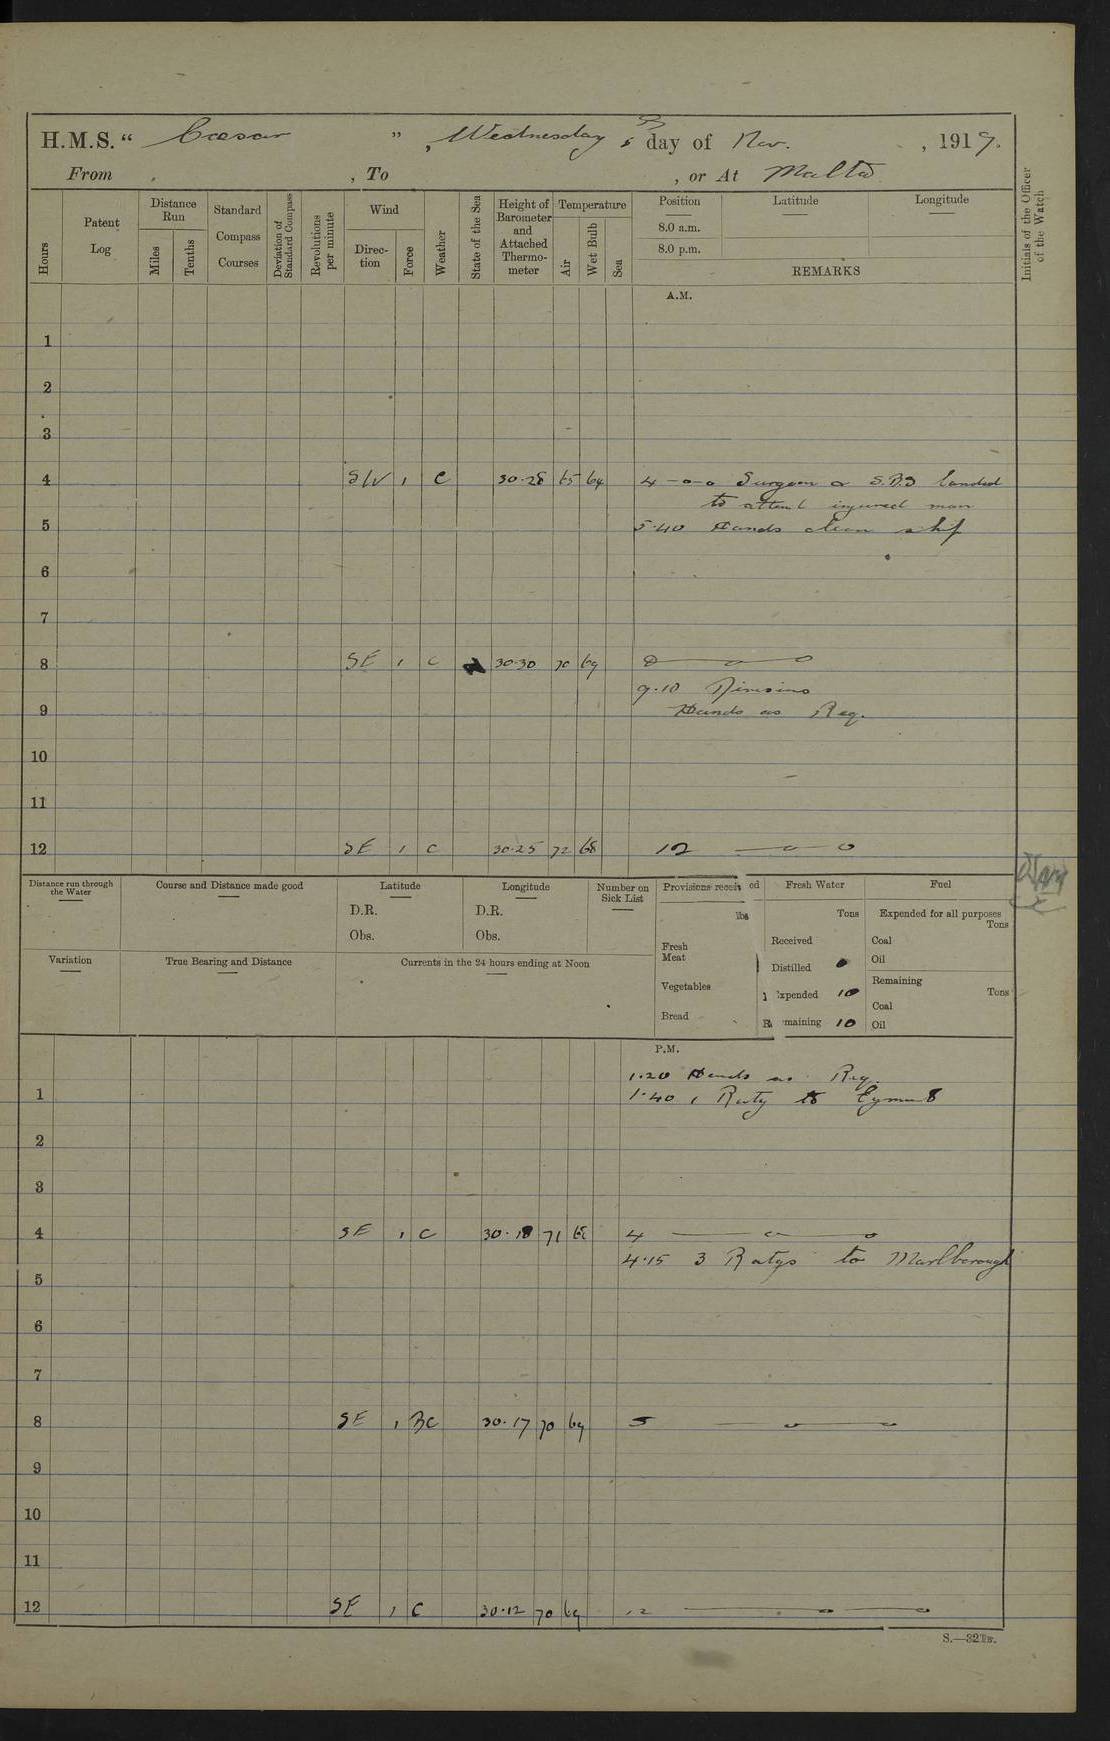 H.M.S. "Cæsar", Wednesday 5th day of Nov. , 1919.
From , To , or At Malta
Hours
Patent Log
Distance Run
Miles
Tenths
Standard Compass Courses
Deviation of Standard Compass
Revolutions per minute
Wind
Direction
Force
Weather
State of the Sea
Height of Barometer and Attached Thermometer
Temperature
Air
Wet Bulb
Sea
Position
Latitude
Longitude
8.0 a.m.
8.0 p.m.
REMARKS
Initials of the Officer of the Watch
A.M.
1
2
3
4 SW 1 C 30.28 65 64 4 -o-o Surgeon & S.B.S landed
to attend injured man
5 5.40 Hands clean ship
6
7
8 SE 1 C 30.30 70 69 8 —o—o
9.10 Divisions
9 Hands as Req.
10
11
12 SE 1 C 30.25 72 68 12 —o—o
Distance run through the Water
Course and Distance made good
Latitude
D.R.
Obs.
Longitude
D.R.
Obs.
Number on Sick List
Provisions received
lbs
Fresh Meat
Vegetables
Bread
Fresh Water
Tons
Received
Distilled
Expended 10
Remaining 10
Fuel
Expended for all purposes
Tons
Coal
Oil
Remaining
Tons
Coal
Oil
Variation
True Bearing and Distance
Currents in the 24 hours ending at Noon
P.M.
1.20 Hands as Req.
1 1.40 1 Ratg to
2
3
4 SE 1 C 30.18 71 68 4 —o—o
4.15 3 Ratgs to Marlborough
5
6
7
8 SE 1 BC 30.17 70 69 —o—o
9
10
11
12 SE 1 C 30.12 70 69 12 —o—o